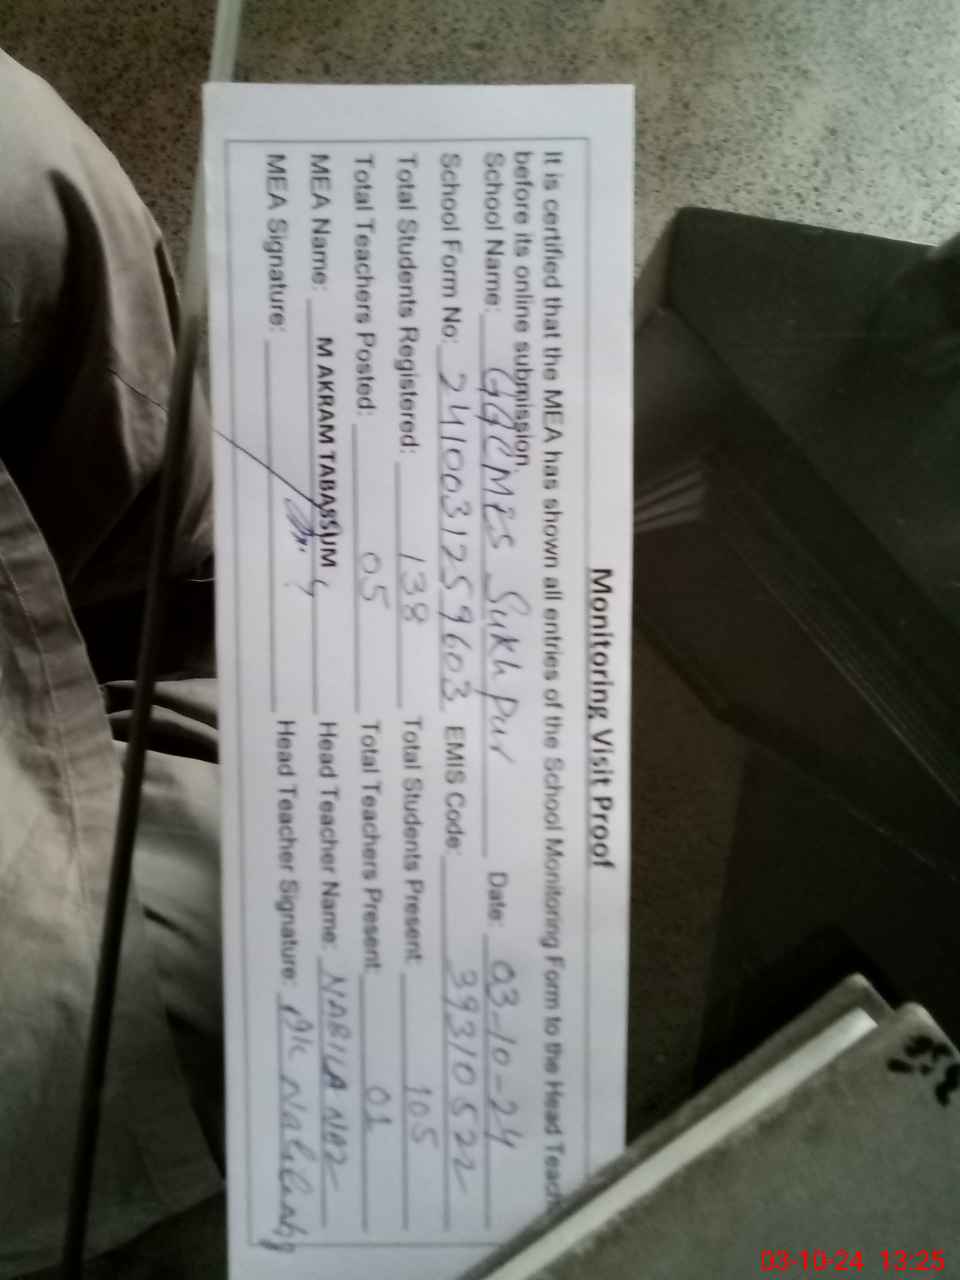 Monitoring Visit Proof
It is certified that the MEA has shown all entries of the School Monitoring Form to the Head Teach
before its online submission.
School Name: GGCMES Sukhpur Date: 03-10-24
School Form No: 2410031259603 EMIS Code: 39310522
Total Students Registered: 138 Total Students Present 105
Total Teachers Posted: 05 Total Teachers Present 01
MEA Name: M AKRAM TABASSUM Head Teacher Name: NABILA NAZ
MEA Signature: Head Teacher Signature:
03-10-24 13:25